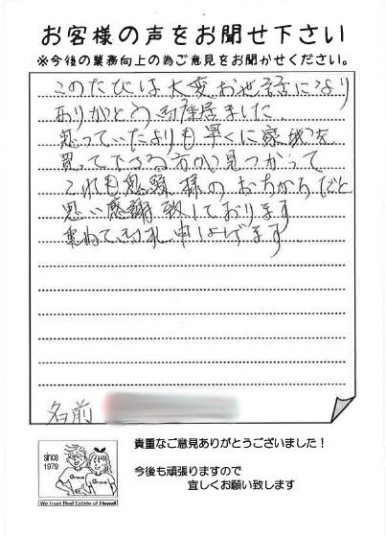 お客様の声をお聞せ下さい
※今後の業務向上の為ご意見をお聞かせください。
このたびは大変お世話になり
ありがとうございました
思っていたよりも早くに家を
買って下さる方が見つかって
これも 様のおちからだと
思い感謝致しております
重ねて御礼申し上げます
名前
since
1979
Grove
Grove
We trust Real Estate of Hawaii
貴重なご意見ありがとうございました!
今後も頑張りますので
宜しくお願い致します